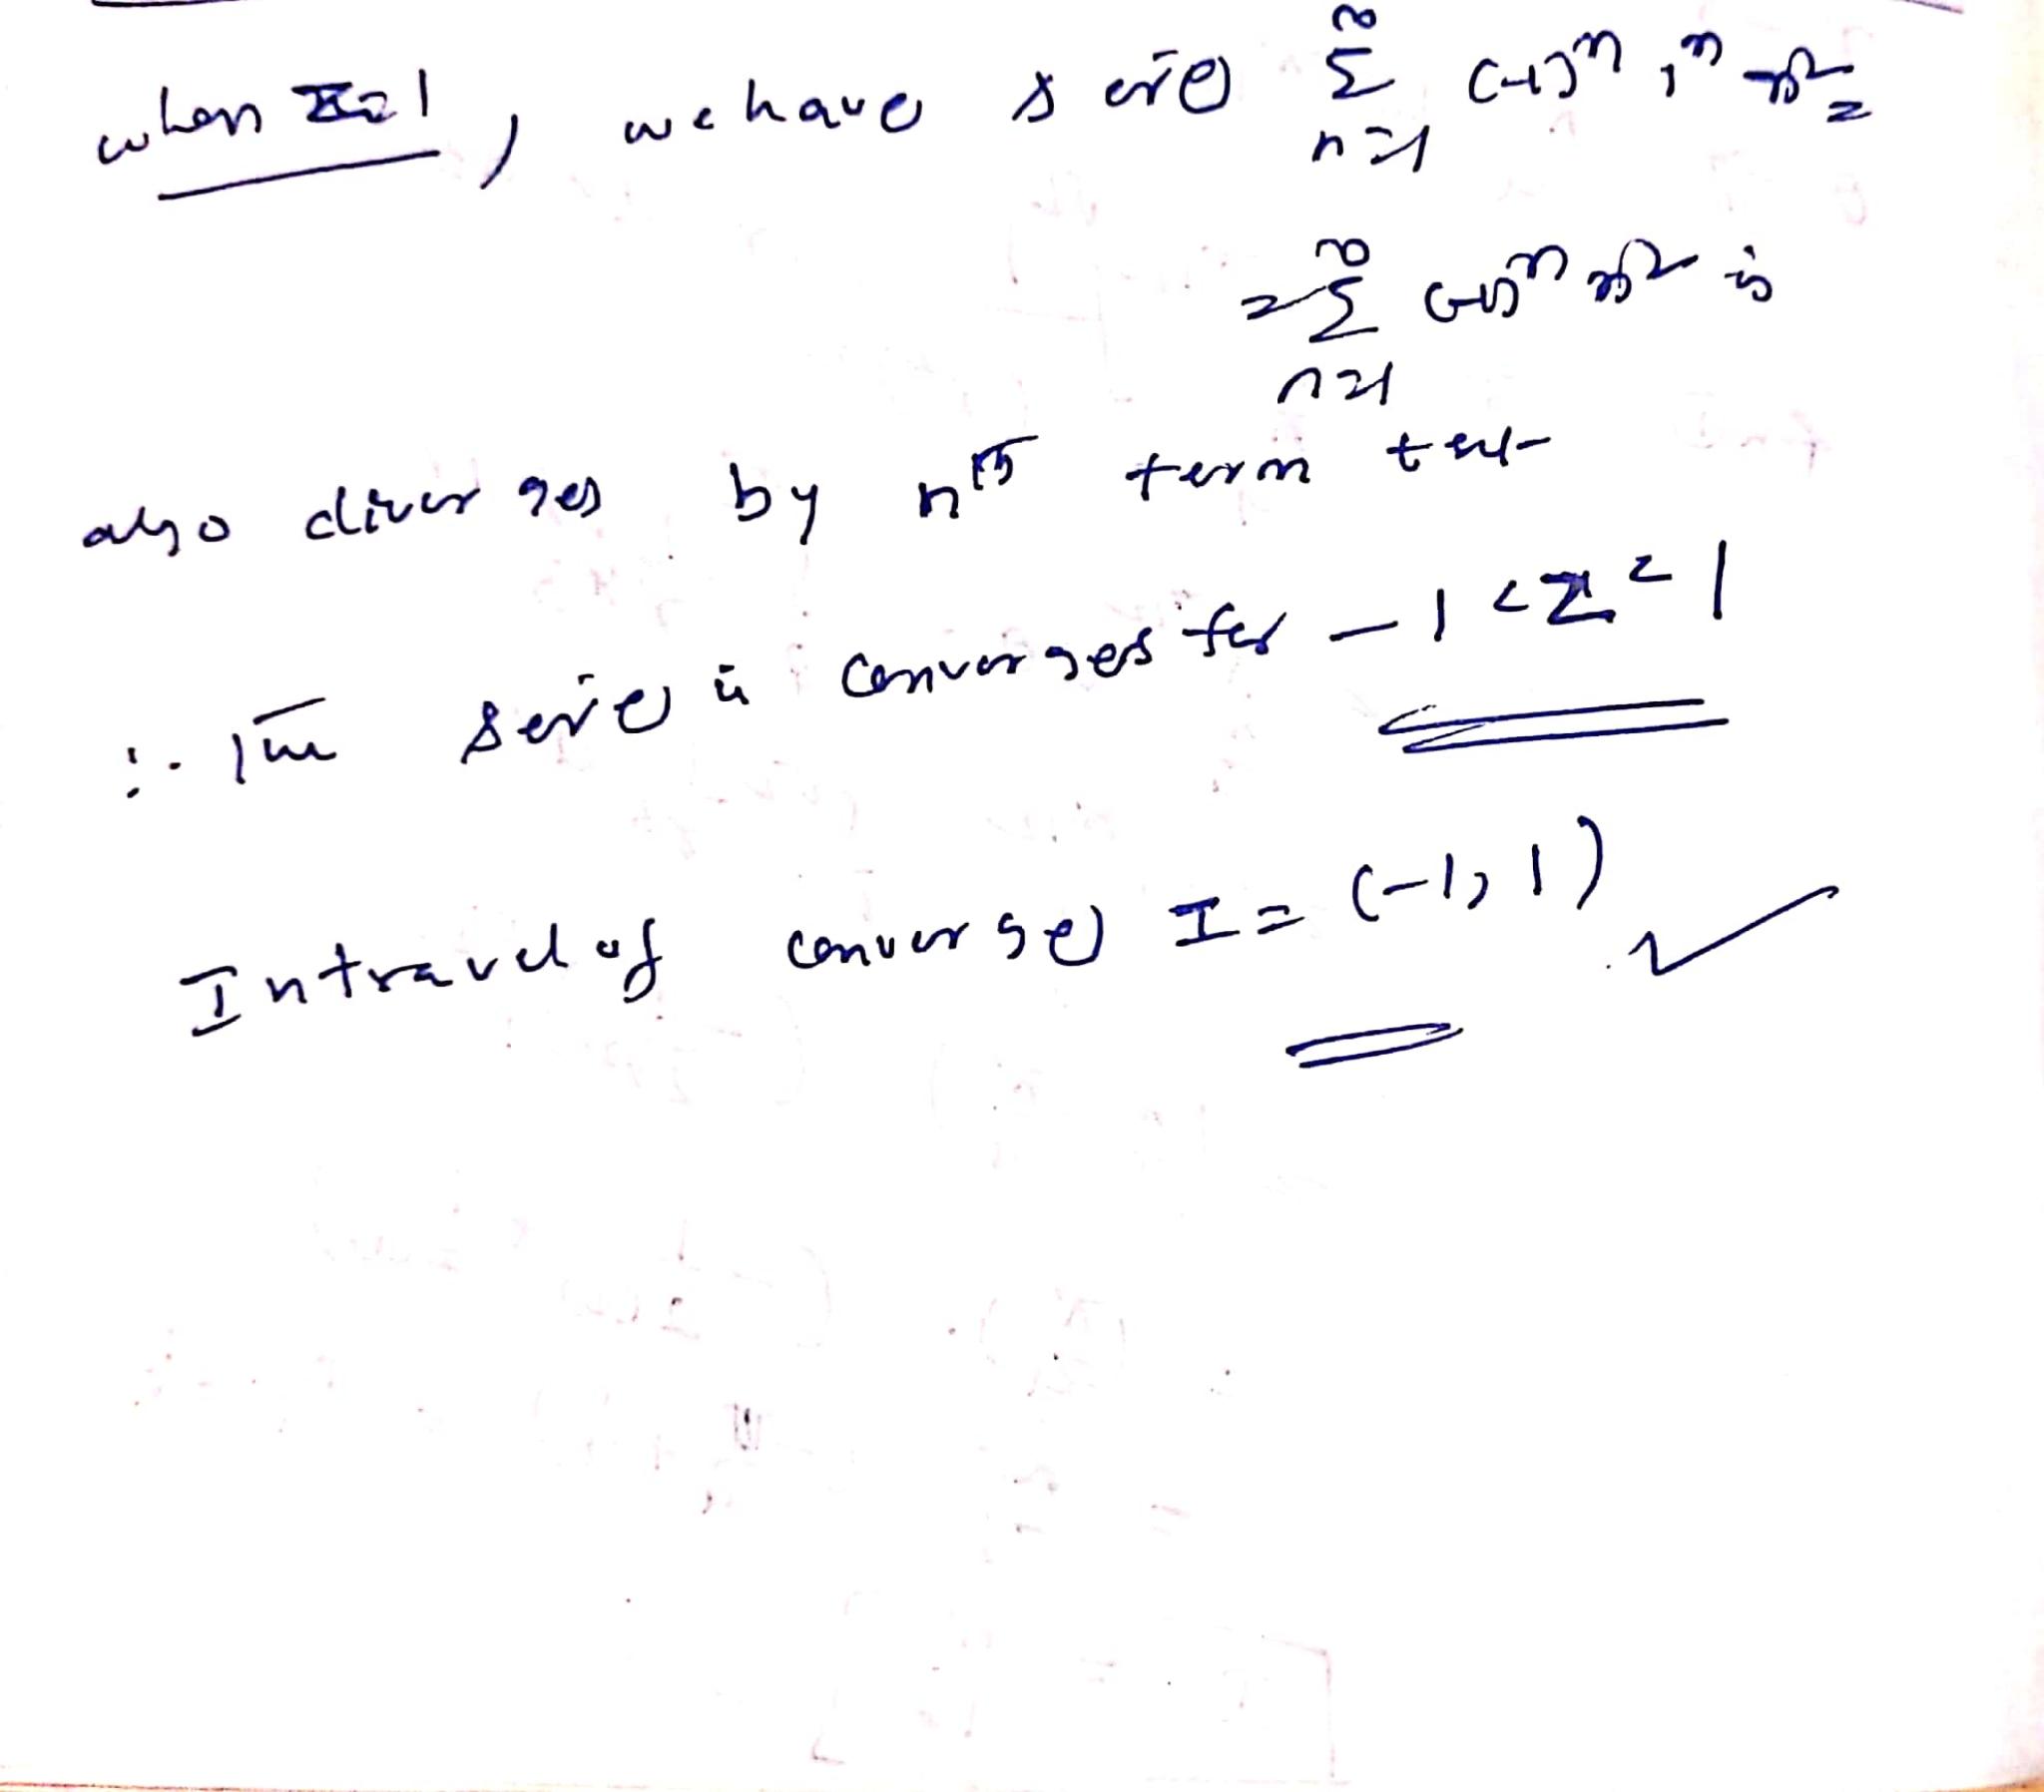 when x=1, we have series ∞ Σ n=1 (-1)ⁿ 1ⁿ n²
= ∞ Σ n=1 (-1)ⁿ n² is
also diverges by nth term test
∴ The series is converges for -1 < x < 1
Intravel of converges I = (-1, 1) ✓